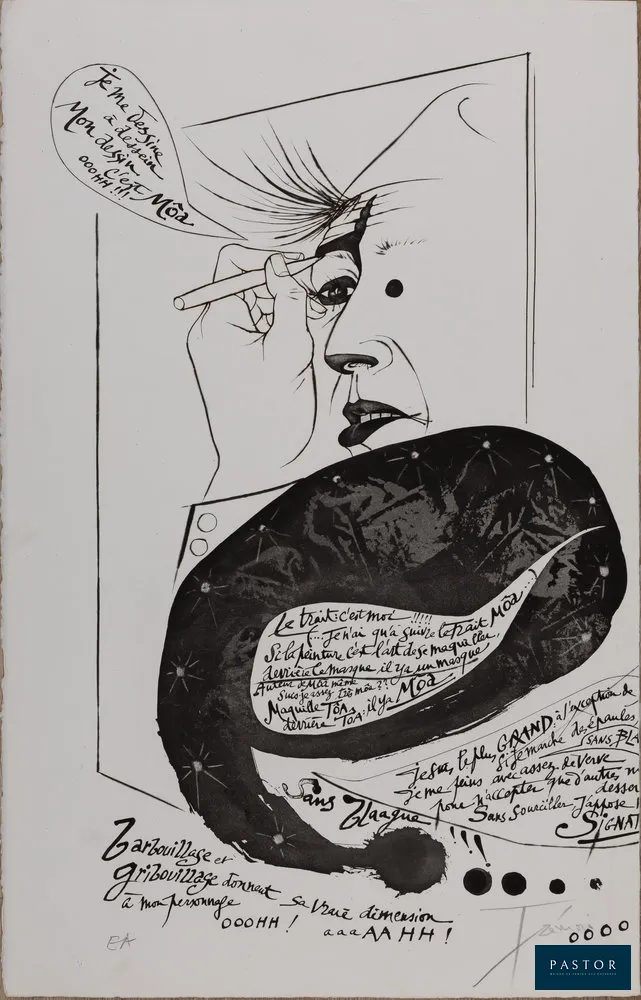 je me dessine
à dessein
Mon dessin
c'est Môa
OOOHH !!!!
Le trait c'est moi !!!!!
(... Je n'ai qu'à suivre le Trait Môa.
Si la peinture c'est l'art de se maquiller,
derrière le masque, il y a un masque
Auteur de Môa même
Suis-je assez
Maquille TOA, il y a Môa
derrière TOA
je suis le plus GRAND à l'exception de
Si je marche des épaules,
SANS BLA
je me peins avec assez de Verve
pour n'accepter que d'autres m
dessor
Sans Sourciller, j'appose
SIGNAT
Sans Blaague !!!
Barbouillage et
Gribouillage donnent
à mon personnage
sa Vraie dimension
OOOHH ! aaaAAHH !
EA
PASTOR